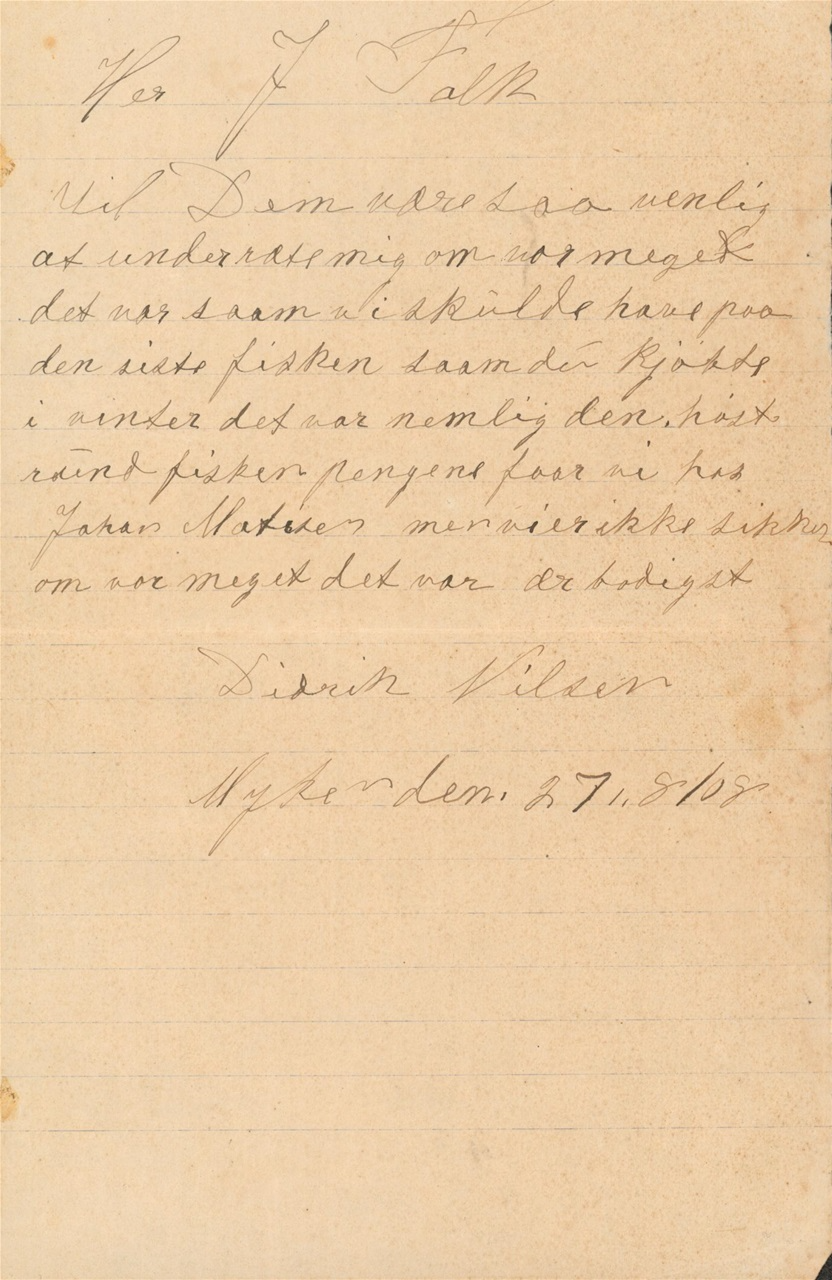 Her J Falk
Vil Dem være saa venlig
at underrate mig om vor meget
det var saam vi skulde have paa
den siste fisken saam di kjøbte
i vinter det var nemlig den høst
raund fisken pengene faar vi has
Johan Matisen men vi er ikke sikker
om vor meget det var ær bødigst
Didrik Nilsen
Myken den. 27/. 8/08